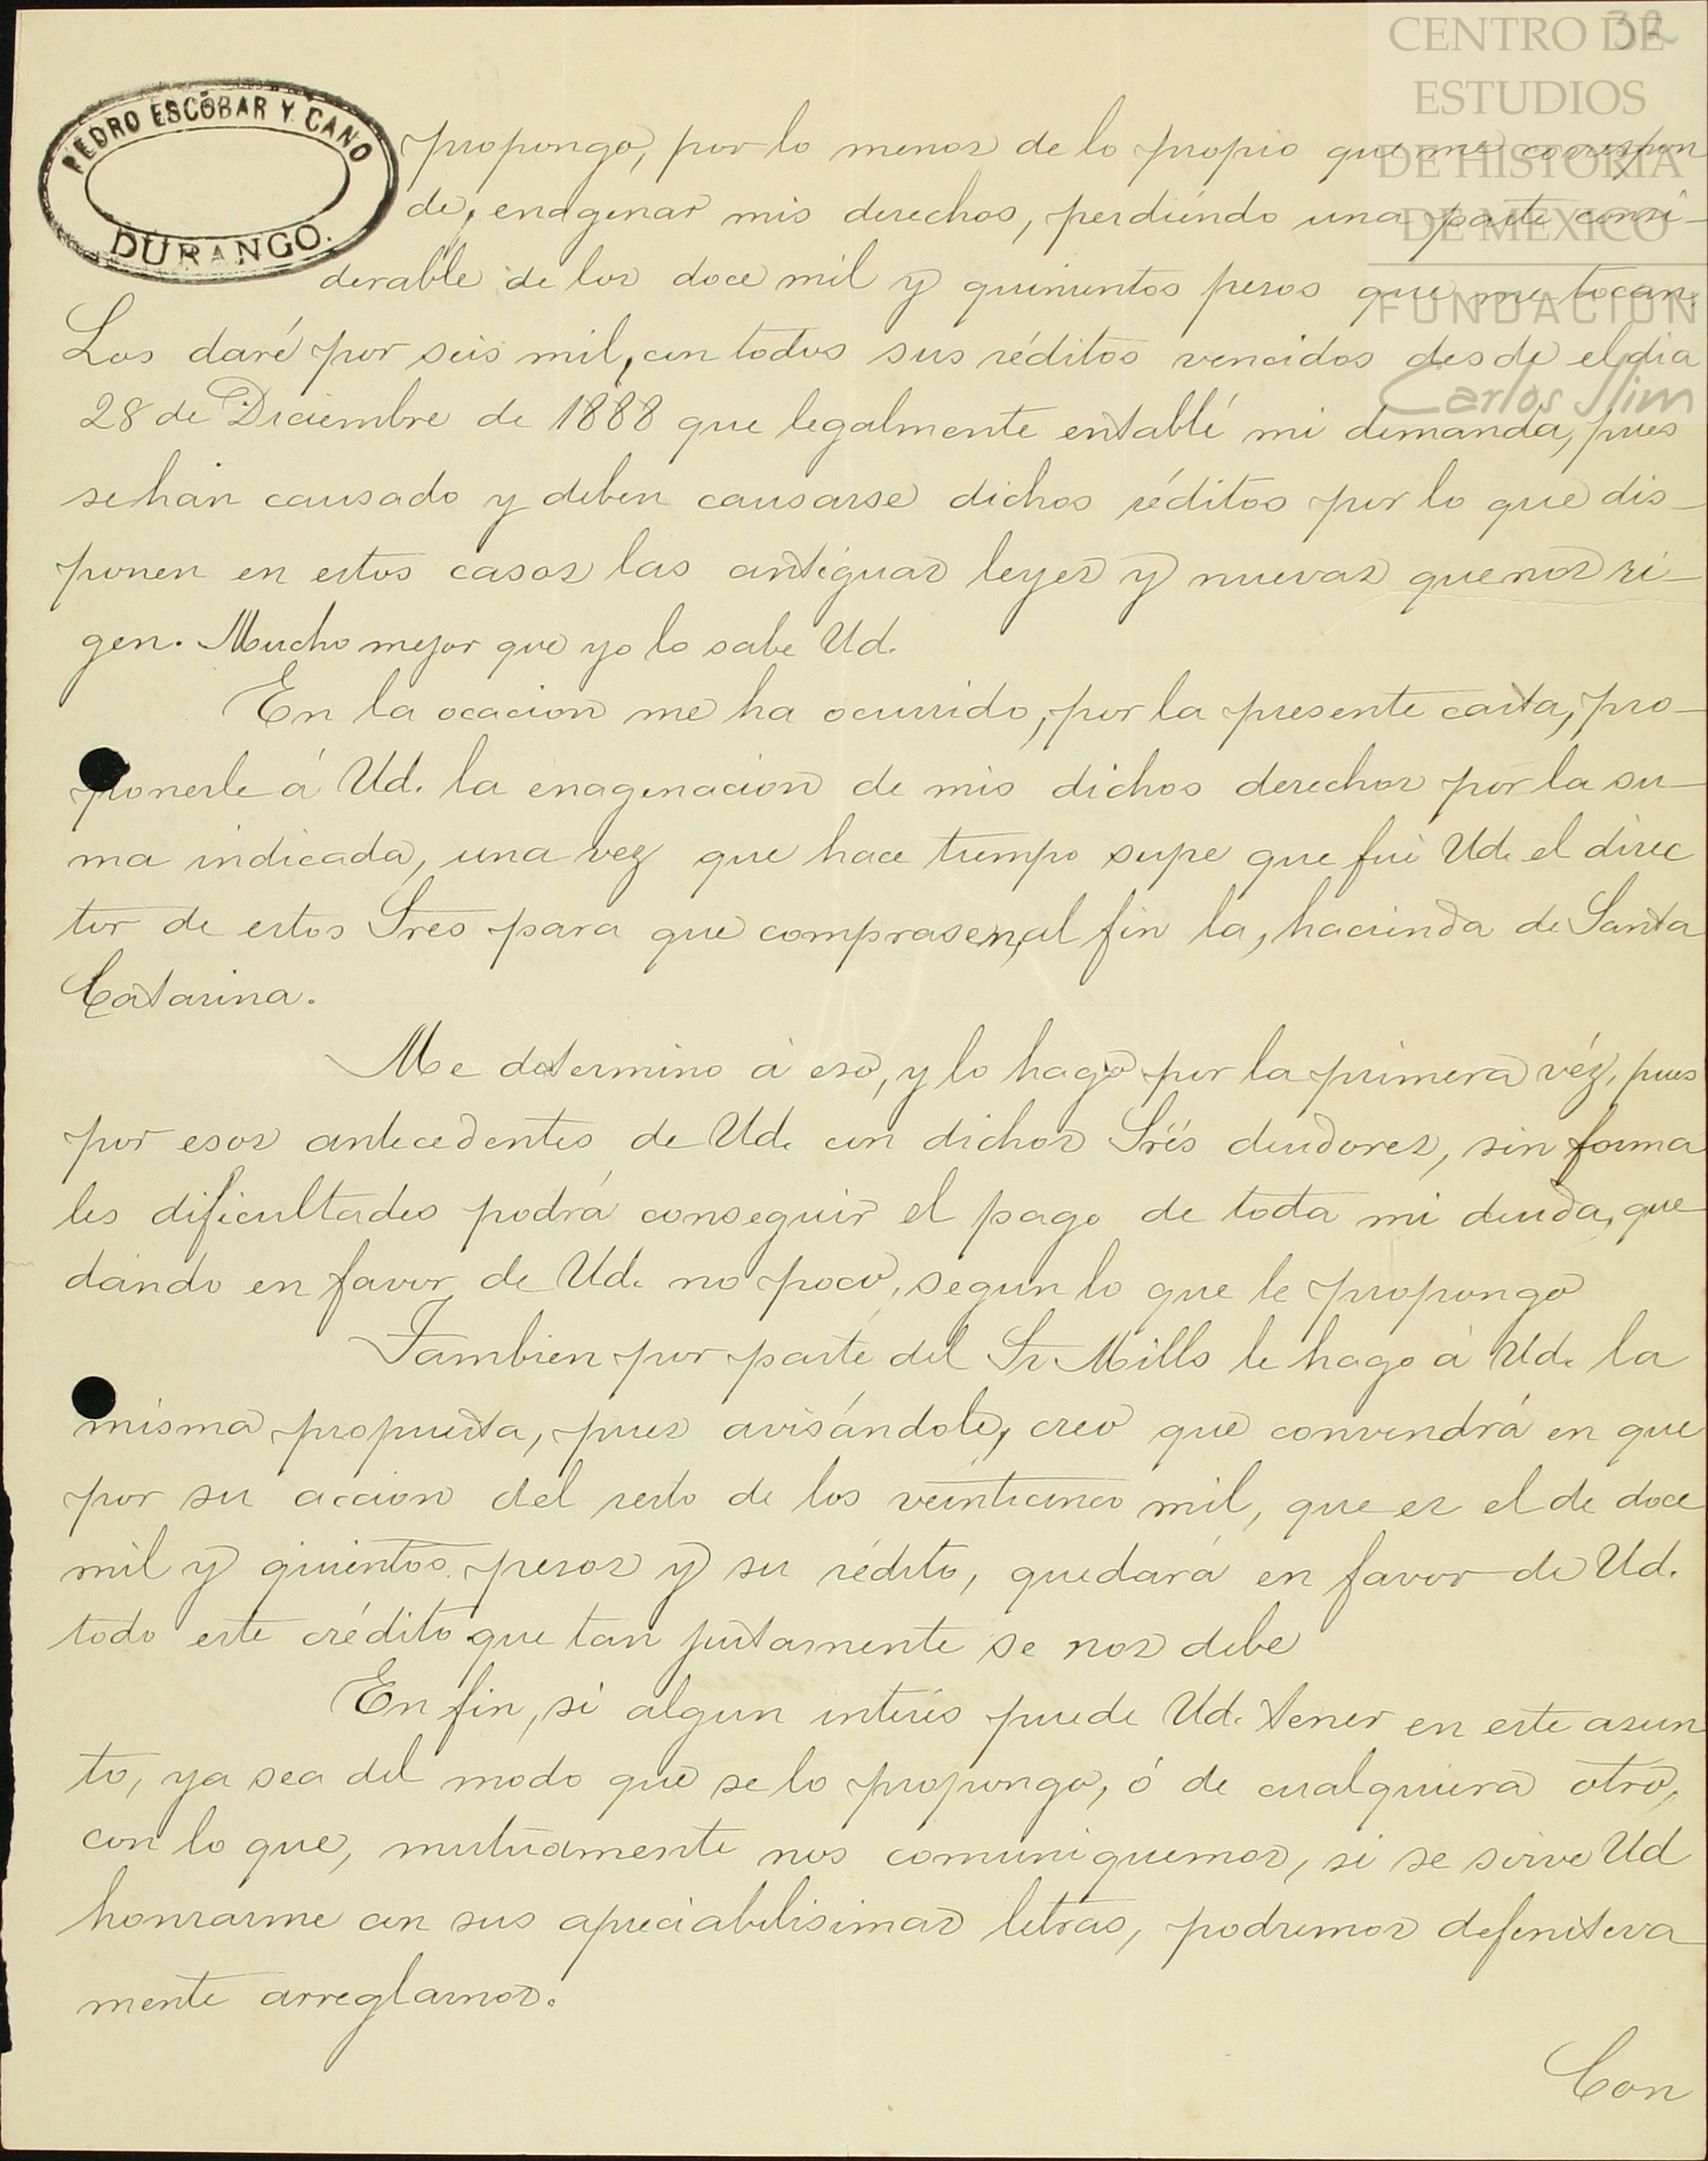 32
CENTRO DE
ESTUDIOS
DE HISTORIA
DE MEXICO
FUNDACION
Carlos Slim
PEDRO ESCOBAR Y CANO
DURANGO.
propongo, por lo menos de lo propio que me correspon
de, enagenar mis derechos, perdiendo una parte consi-
derable de los doce mil y quinientos pesos que me tocan.
Los daré por seis mil, con todos sus réditos vencidos desde el dia
28 de Diciembre de 1888 que legalmente entablé mi demanda, pues
se han causado y deben causarse dichos réditos por lo que dis-
ponen en estos casos las antiguas leyes y nuevas que nos ri-
gen. Mucho mejor que yo lo sabe Ud.
En la ocacion me ha ocurrido, por la presente carta, pro-
ponerle á Ud. la enagenacion de mis dichos derechos por la su-
ma indicada, una vez que hace tiempo supe que fué Ud. el direc
tor de estos Sres para que comprasen, al fin la, hacienda de Santa
Catarina.
Me determino á eso, y lo hago por la primera véz, pues
por esos antecedentes de Ud. con dichos Srés deudores, sin forma
les dificultades podrá conseguir el pago de toda mi deuda, que
dando en favor de Ud. no poco, segun lo que le propongo
Tambien por parte del Sr Mills le hago á Ud. la
misma propuesta, pues avisándole, creo que convendrá en que
por su accion del resto de los veinticinco mil, que es el de doce
mil y quientos pesos y su rédito, quedará en favor de Ud.
todo este crédito que tan justamente se nos debe
En fin, si algun interés puede Ud. tener en este asun
to, ya sea del modo que se lo propongo, ó de cualquiera otro,
con lo que, mutuamente nos comuniquemos, si se sirve Ud
honrarme con sus apreciabilisimas letras, podremos definitiva
mente arreglarnos.
Con